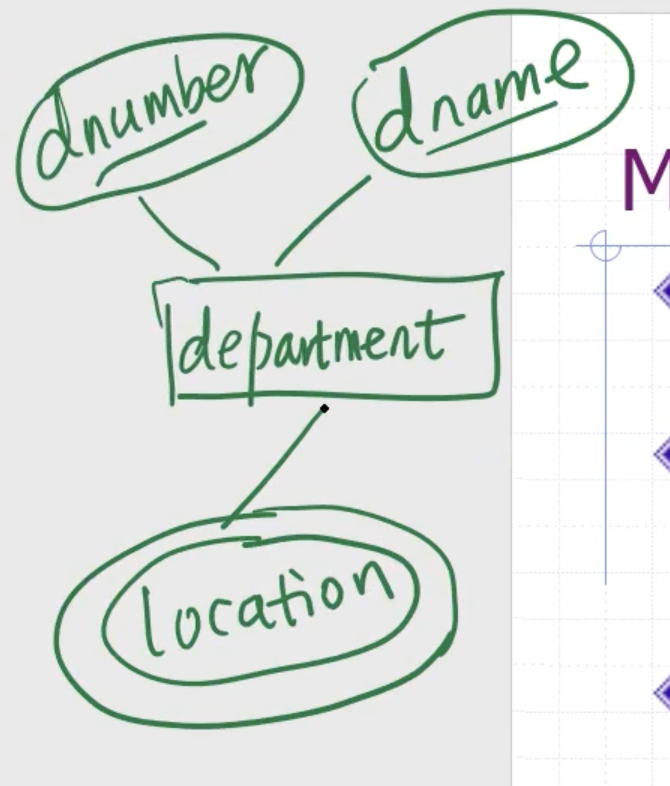 dnumber
dname
M
department
location